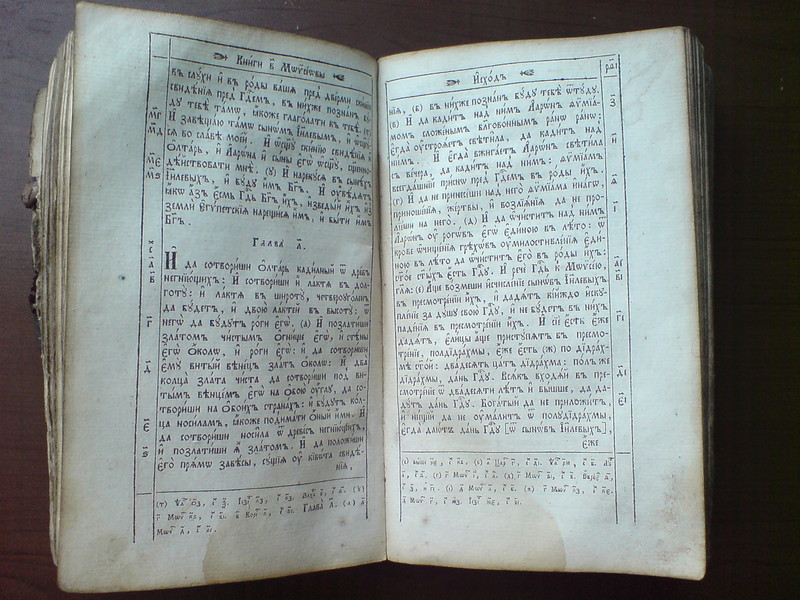 Книги в҃ Мѡѷсеѡвы
въ слꙋхи и҆ въ ро́ды ва́шѧ пред̾ две́рми ски́нїи
свидѣ́нїѧ пред̾ гд҇емъ, въ ни́хже позна́нъ бꙋ́-
дꙋ тебѣ̀ та́мѡ, ꙗ҆́коже глаго́лати къ тебѣ̀.
И҆ завѣща́ю та́мѡ сынѡ́мъ і҆и҃лєвымъ, и҆
сѧ во сла́вѣ мое́й. И҆ ѡ҆сщ҃ꙋ̀ ски́нїю свидѣ́нїѧ и҆
ѻ҆лта́рь, и҆ а҆арѡ́на и҆ сы́ны є҆гѡ̀ ѡ҆сщ҃ꙋ̀, сщ҃е́нно-
дѣ́йствовати мнѣ̀. И҆ нарекꙋ́сѧ въ сынѣ́хъ
і҆и҃лєвыхъ, и҆ бꙋ́дꙋ и҆̀мъ бг҃ъ. И҆ ᲂу҆вѣ́дѧтъ
ꙗ҆́кѡ а҆́зъ є҆́смь гд҇ь бг҃ъ и҆́хъ, и҆зведы́й и҆̀хъ и҆з̾
землѝ є҆гѵ́петскїѧ нарещи́сѧ и҆̀мъ, и҆ бы́ти и҆̀мъ
бг҃ъ.
Глава̀ л҃.
И҆ да сотвори́ши ѻ҆лта́рь кади́лный ѿ дре́въ
негнїю́щихъ: И҆ сотвори́ши и҆̀ ла́ктѧ въ дол-
готꙋ̀: и҆ ла́ктѧ въ широтꙋ̀, четвероуго́ленъ
да бꙋ́детъ, и҆ двою̀ ла́ктей въ высотꙋ̀: ѿ
негѡ̀ да бꙋ́дꙋтъ ро́ги є҆гѡ̀. (а) И҆ позлати́ши
зла́томъ чи́стымъ ѻ҆гни́ще є҆гѡ̀, и҆ стѣ́ны
є҆гѡ̀ ѡ҆́колѡ, и҆ ро́ги є҆гѡ̀: и҆ да сотвори́ши
є҆мꙋ̀ ви́тый вѣне́цъ зла́тъ ѡ҆́колѡ: И҆ два̀
кѡльца̀ зла́та чи̑ста да сотвори́ши под̾ ви-
тымъ вѣнце́мъ є҆гѡ̀ на ѻ҆́бою ᲂу҆́глꙋ, да со-
твори́ши на ѻ҆бои́хъ страна́хъ: и҆ бꙋ́дꙋтъ кол-
ца̀ носи́ламъ, ꙗ҆́коже подима́ти ѻ҆́ный и҆́ми. И҆
да сотвори́ши носи̑ла ѿ древе́съ негнїю́щихъ,
и҆ позлати́ши ѧ҆̀ зла́томъ. И҆ да положи́ши
є҆го̀ прѧ́мѡ завѣ́сы, сꙋ́щїѧ ᲂу҆ кївѡ́та свидѣ́-
нїѧ,
Глава̀ л҃.
И҆схо́дъ
нїѧ, (б) въ ни́хже позна́нъ бꙋ́дꙋ тебѣ̀ ѿтꙋ́дꙋ.
(в) И҆ да кади́тъ над̾ ни́мъ а҆арѡ́нъ ѳѷмїа́-
момъ сло́жнымъ благово́ннымъ ра́нѡ ра́нѡ:
є҆гда̀ ᲂу҆строѧ́етъ свѣти̑ла, да кади́тъ над̾
ни́мъ. И҆ є҆гда̀ вжига́етъ а҆арѡ́нъ свѣти̑ла
съ ве́чера, да кади́тъ над̾ ни́мъ: ѳѷмїа́мъ
всегда́шнїй при́снѡ пред̾ гд҇емъ въ ро́ды и҆́хъ.
(г) И҆ да не принесе́ши над̾ него̀ ѳѷмїа́ма и҆на́гѡ,
приноше́нїѧ, же́ртвы, и҆ возлїѧ́нїѧ да не про-
лїе́ши на него̀. (д) И҆ да ѡ҆чи́ститъ над̾ ни́мъ
а҆арѡ́нъ ᲂу҆ рогѡ́въ є҆гѡ̀ є҆ди́ною въ лѣ́то: ѿ
кро́ве ѡ҆чище́нїѧ грѣхѡ́въ ᲂу҆ми́лостивленїѧ є҆ди́-
ною въ лѣ́то да ѡ҆чи́ститъ є҆го̀ въ ро́ды и҆́хъ:
ст҃о́е ст҃ы́хъ є҆́сть гд҇ꙋ. И҆ речѐ гд҇ь къ мѡѷсе́ю,
гл҃ѧ: (є) а҆́ще во́змеши и҆счисле́нїе сынѡ́въ і҆и҃лєвыхъ
въ пресмотре́нїи и҆́хъ, и҆ дадѧ́тъ кі́йждо и҆скꙋ-
пле́нїе за дꙋ́шꙋ свою̀ гд҇ꙋ, и҆ не бꙋ́детъ въ ни́хъ
паде́нїѧ въ пресмотре́нїи и҆́хъ. И҆ сїѐ є҆́сть є҆́же
дадѧ́тъ, є҆ли́цы а҆́ще пристꙋ́пѧтъ въ пресмо-
тре́нїе, полдїдра́хмы, є҆́же є҆́сть (ж) по дїдра́х-
мѣ ст҃о́й: два́десѧть ца́тъ дїдра́хма: по́лъ же
дїдра́хмы, да́нь гд҇ꙋ. Всѧ́къ входѧ́й въ пре-
смотре́нїе ѿ двадесѧтѝ лѣ́тъ и҆ вы́шше, да да-
дꙋ́тъ да́нь гд҇ꙋ. Бога́тый да не приложи́тъ,
и҆ ни́щїй да не ᲂу҆ма́литъ ѿ полꙋдїдра́хмы,
є҆гда̀ даю́тъ да́нь гд҇ꙋ [ѿ сынѡ́въ і҆и҃лєвыхъ],
є҆́же